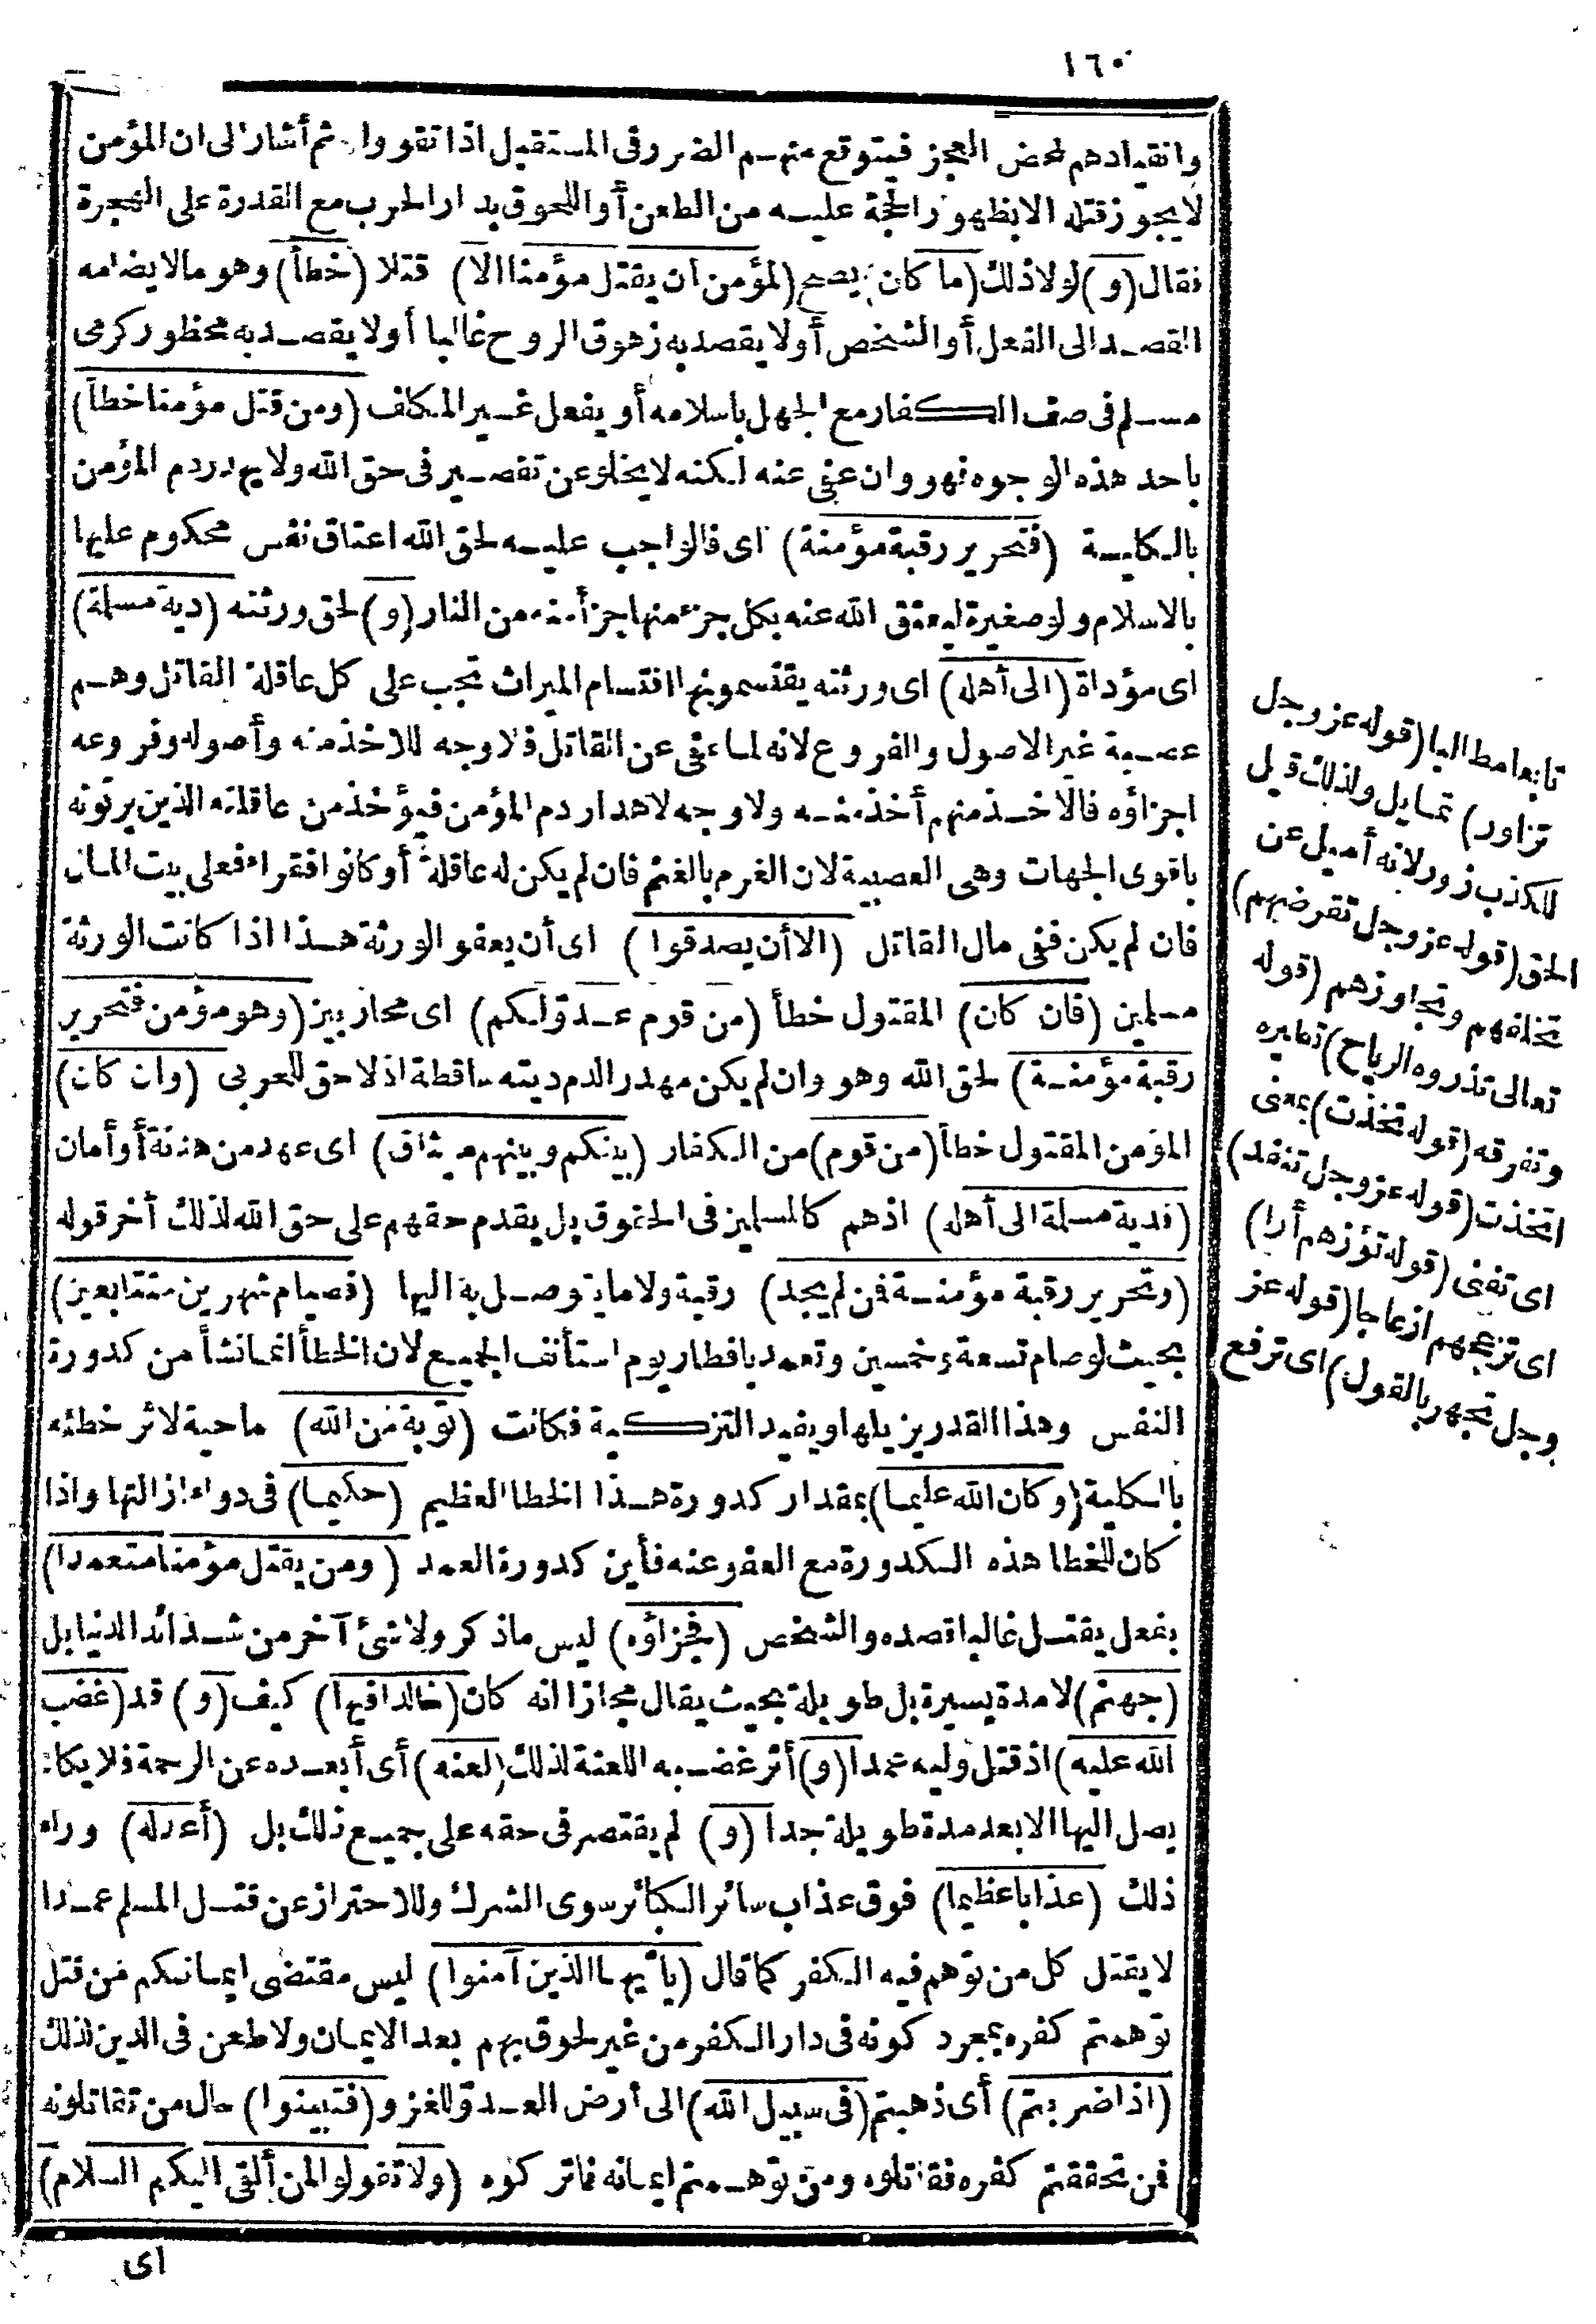 ١٦٠
وانقيادهم لمحض العجز فيتوقع منهم الضرر وفى المستقبل اذا تقووا ثم أشار الى ان المؤمن
لا يجوز قتله الا بظهور الحجة عليه من الطعن أو اللحوق بدار الحرب مع القدرة على الهجرة
فقال (و) لولا ذلك (ما كان) يصح (لمؤمن ان يقتل مؤمنا الا) قتلا (خطأ) وهو مالا يضامه
القصد الى الفعل أو الشخص أو لا يقصد به زهوق الروح غالبا أو لا يقصد به محظور كرمى
مسلم فى صف الكفار مع الجهل باسلامه أو يفعل غير المكلف (ومن قتل مؤمنا خطأ)
باحد هذه الوجوه فهو وان عفى عنه لكنه لا يخلو عن تقصير فى حق الله ولا يهدر دم المؤمن
بالكلية (فتحرير رقبة مؤمنة) اى فالواجب عليه لحق الله اعتاق نفس محكوم عليها
بالاسلام ولو صغيرة ليعتق الله عنه بكل جزء منها جزأ منه من النار (و) لحق ورثته (دية مسلمة)
اى مؤداة (الى أهله) اى ورثته يقتسمونها اقتسام الميراث تجب على كل عاقلة القاتل وهم
عصبة غير الاصول والفروع لانه لما عفى عن القاتل فلا وجه للاخذ منه وأصوله وفروعه
اجزاؤه فالاخذ منهم أخذ منه ولا وجه لاهدار دم المؤمن فيؤخذ من عاقلته الذين يرثونه
باقوى الجهات وهى العصبية لان الغرم بالغنم فان لم يكن له عاقلة أو كانوا فقراء فعلى بيت المال
فان لم يكن ففى مال القاتل (الا أن يصدقوا) اى أن يعفو الورثة هذا اذا كانت الورثة
مسلمين (فان كان) المقتول خطأ (من قوم عدوّ لكم) اى محاربين (وهو مؤمن فتحرير
رقبة مؤمنة) لحق الله وهو وان لم يكن مهدر الدم ديته ساقطة اذ لا حق للحربى (وان كان)
المؤمن المقتول خطأ (من قوم) من الكفار (بينكم وبينهم ميثاق) اى عهد من هدنة أو أمان
(فدية مسلمة الى أهله) اذ هم كالمسلمين فى الحقوق بل يقدم حقهم على حق الله لذلك أخر قوله
(وتحرير رقبة مؤمنة فمن لم يجد) رقبة ولا ما يتوصل به اليها (فصيام شهرين متتابعين)
بحيث لو صام تسعة وخمسين وتعمد بافطار يوم استأنف الجميع لان الخطأ انما نشأ من كدورة
النفس وهذا القدر يزيلها ويفيد التزكية فكانت (توبة من الله) ماحية لاثر خطئه
بالكلية (وكان الله عليما) بمقدار كدورة هذا الخطا العظيم (حكيما) فى دواء ازالتها واذا
كان للخطا هذه الكدورة مع العفو عنه فأين كدورة العمد (ومن يقتل مؤمنا متعمدا)
بفعل يقتل غالبا قصده والشخص (فجزاؤه) ليس ماذكر ولا شئ آخر من شدائد الدنيا بل
(جهنم) لا مدة يسيرة بل طويلة بحيث يقال مجازا انه كان (خالدا فيها) كيف (و) قد (غضب
الله عليه) اذ قتل وليه عمدا (و) أثر غضبه اللعنة لذلك (لعنه) أى أبعده عن الرحمة فلا يكاد
يصل اليها الا بعد مدة طويلة جدا (و) لم يقتصر فى حقه على جميع ذلك بل (أعد له) وراء
ذلك (عذابا عظيما) فوق عذاب سائر الكبائر سوى الشرك وللاحتراز عن قتل المسلم عمدا
لا يقتل كل من توهم فيه الكفر كما قال (يا أيها الذين آمنوا) ليس مقتضى ايمانكم من قتل
توهمتم كفره بمجرد كونه فى دار الكفر من غير لحوق بهم بعد الايمان ولا طعن فى الدين لذلك
(اذا ضربتم) أى ذهبتم (فى سبيل الله) الى أرض العدوّ للغزو (فتبينوا) حال من تقاتلونه
فمن تحققتم كفره فقاتلوه ومن توهمتم ايمانه فاتركوه (ولا تقولوا لمن ألقى اليكم السلام)
اى
تابعا مطالبا (قوله عز وجل
تزاور) تمايل ولذلك قيل
للكذب زور لانه أميل عن
الحق (قوله عز وجل تقرضهم)
تخلفهم وتجاوزهم (قوله
تعالى تذروه الرياح) تطيره
وتفرقه (قوله تخذت) بمعنى
اتخذت (قوله عز وجل تنفد)
اى تفنى (قوله تؤزهم أزا)
اى تزعجهم ازعاجا (قوله عز
وجل تجهر بالقول) اى ترفع